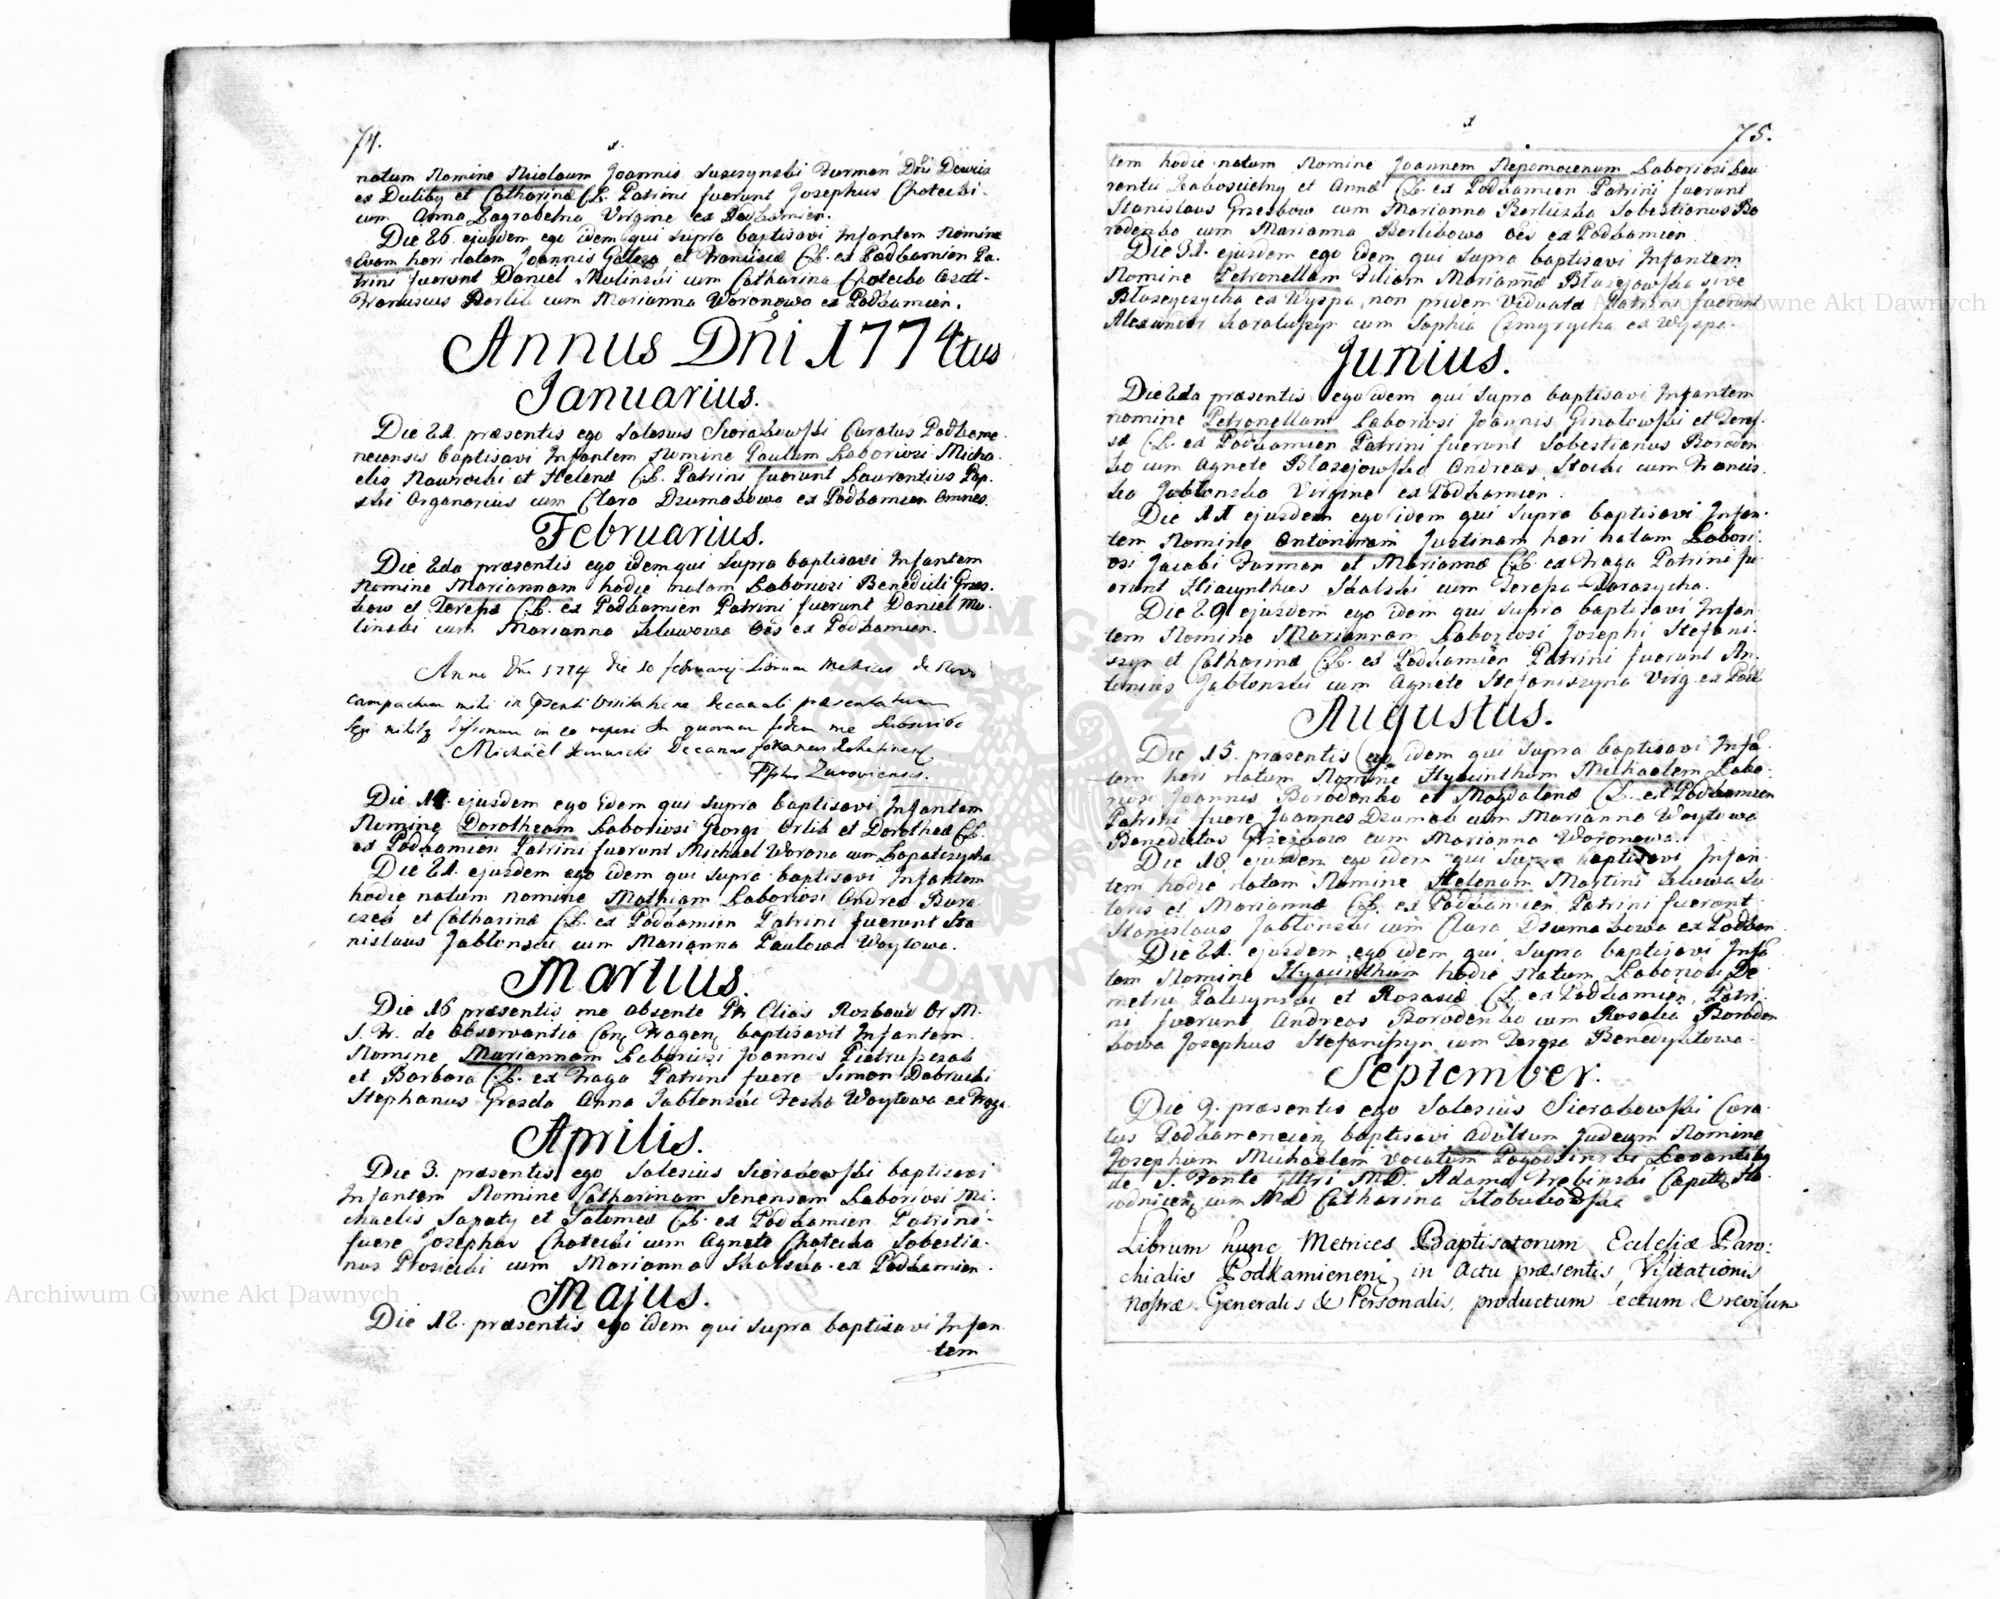 74.
natum Nomine Nicolaum Joannis Suszynski Furman Dni Dewicz
ex Duliby et Catharinæ C.L. Patrini fuerunt Josephus Chotecki
cum Anna Zagrabelna Virgine ex Podkamien.
Die 26. ejusdem ego idem qui supra baptisavi Infantem Nomine
Evam heri natam Joannis Galega et Francisca C.L. ex Podkamien Pa-
trini fuerunt Daniel Mulinski cum Catharina Chotecka
Franciscus Berlik cum Marianna Woronowa ex Podkamien.
Annus Dni 1774tus
Januarius.
Die 21. præsentis ego Salesius Sierakowski Curatus Podkame-
necensis baptisavi Infantem Nomine Paulum Laboriosi Micha-
elis Nawrocki et Helenæ C.L. Patrini fuerunt Laurentius Pop-
ski Organarius cum Clara Dzumakowa ex Podkamien omnes.
Februarius.
Die 2da præsentis ego idem qui supra baptisavi Infantem
Nomine Mariannam hodie natam Laboriosi Benedicti Grzes-
kow et Teresæ C.L. ex Podkamien Patrini fuerunt Daniel Mu-
linski cum Marianna Seluwowa Oes ex Podkamien.
Anno Dni 1774 die 10 februarij Librum Metrices de Novo
compactum mihi in Præsenti Visitatione Decanali præsentatum
legi nihilq in eo reperi In quorum fidem me subscribo
Michael Decanus foraneus Rohatinens
Zuroviensis.
Die 14. ejusdem ego idem qui supra baptisavi Infantem
Nomine Dorotheam Laboriosi Georgi Orlik et Dorotheæ C.L.
ex Podkamien Patrini fuerunt Michael Worona cum Lopatczycha
Die 21. ejusdem ego idem qui supra baptisavi Infantem
hodie natum nomine Mathiam Laboriosi Andreæ Bura-
czek et Catharinæ C.L. ex Podkamien Patrini fuerunt Sta-
nislaus Jablonski cum Marianna Pawlowa Woytowa.
Martius.
Die 16 præsentis me absente Pr. Elias Rozbaud Or M.
S. Fr. de observantia Con Fragen baptisavit Infantem
Nomine Mariannam Laboriosi Joannis Pietruszczak
et Barbara C.L. ex Fraga Patrini fuere Simon Dobrucki
Stephanus Greszla Anna Jablonski Feska Woytowa ex Fraga.
Aprilis.
Die 3. præsentis ego Salesius Sierakowski baptisavi
Infantem Nomine Catharinam Senensem Laboriosi Mi-
chaelis Sapaty et Salomeæ C.L. ex Podkamien Patrini
fuere Josephus Chotecki cum Agnete Chotecka Sobestia-
nus Ptosicki cum Marianna Skalska ex Podkamien.
Majus.
Die 12. præsentis ego idem qui supra baptisavi Infan-
tem
75.
tem hodie natum Nomine Joannem Nepomocenum Laboriosi Lau-
rentii Laboscielny et Annæ C.L. ex Podkamien Patrini fuerunt
Stanislaus Grzeskow cum Marianna Berliczka Sobestianus Bo-
rodenko cum Marianna Berlikowa Oes ex Podkamien
Die 31. ejusdem ego idem qui supra baptisavi Infantem
Nomine Petronellam Filiam Mariannæ Blazejowska sive
Blazeyczycha ex Wyspa, non pridem Viduatæ Patrini fuerunt
Alexander cum Sophia Czmyrycha ex Wyspa.
Junius.
Die 2da præsentis ego idem qui supra baptisavi Infantem
nomine Petronellam Laboriosi Joannis Ginalowski et Teres-
sæ C.L. ex Podkamien Patrini fuerunt Sobestianus Boroden-
ko cum Agnete Blazejowska Andreas Stocki cum Francis-
ka Jablonska Virgine ex Podkamien.
Die 11 ejusdem ego idem qui supra baptisavi Infan-
tem Nomine Antoninam Justinam heri natam Labori-
osi Jacobi Furman et Mariannæ C.L. ex Fraga Patrini fu-
erunt Hiacynthus Skalski cum Teressa Tarasycha.
Die 29. ejusdem ego idem qui supra baptisavi Infan-
tem Nomine Mariannam Laboriosi Josephi Stefani-
szyn et Catharinæ C.L. ex Podkamien Patrini fuerunt An-
tonius Jablonski cum Agnete Stefaniszyna Virg. ex Pod
Augustus.
Die 15. præsentis ego idem qui supra baptisavi Infa-
tem heri natum Nomine Hyacinthum Michaelem Labo-
riosi Joannis Borodenko et Magdalenæ C.L. ex Podkamien
Patrini fuere Joannes Dzumak cum Marianna Woytowa
Benedictus Grzeskow cum Marianna Woronowa.
Die 18 ejusdem ego idem qui supra baptisavi Infan-
tem hodie natam Nomine Helenam Martini Seluwa Su-
toris et Mariannæ C.L. ex Podkamien Patrini fuerunt
Stanislaus Jablonski cum Clara Dzumakowa ex Podkam
Die 21. ejusdem ego idem qui supra baptisavi Infa-
tem Nomine Hyacinthum hodie natum Laboriosi De-
metri Palczynski et Rosaliæ C.L. ex Podkamien Patri-
ni fuerunt Andreas Borodenko cum Rosalia Boroden-
kowa Josephus Stefaniszyn cum Teresa Benedyktowa.
September.
Die 9. præsentis ego Salesius Sierakowski Cura-
tus Podkamenecien baptisavi adultum Judeum Nomine
Josephum Michaelem vocatum Pogodzinski Levantibq
de S. Fonte Illtri MD. Adamo Trebinski Capit Ho-
rodnicen cum MD Catharina Skotubowska
Librum hunc Metrices Baptisatorum Ecclesiæ Paro-
chialis Podkamienen in Actu præsentis Visitationis
Nostræ Generalis & Personalis, productum lectum & revisum
Archiwum Główne Akt Dawnych
Archiwum Główne Akt Dawnych
ARCHIWUM GŁÓWNE AKT DAWNYCH